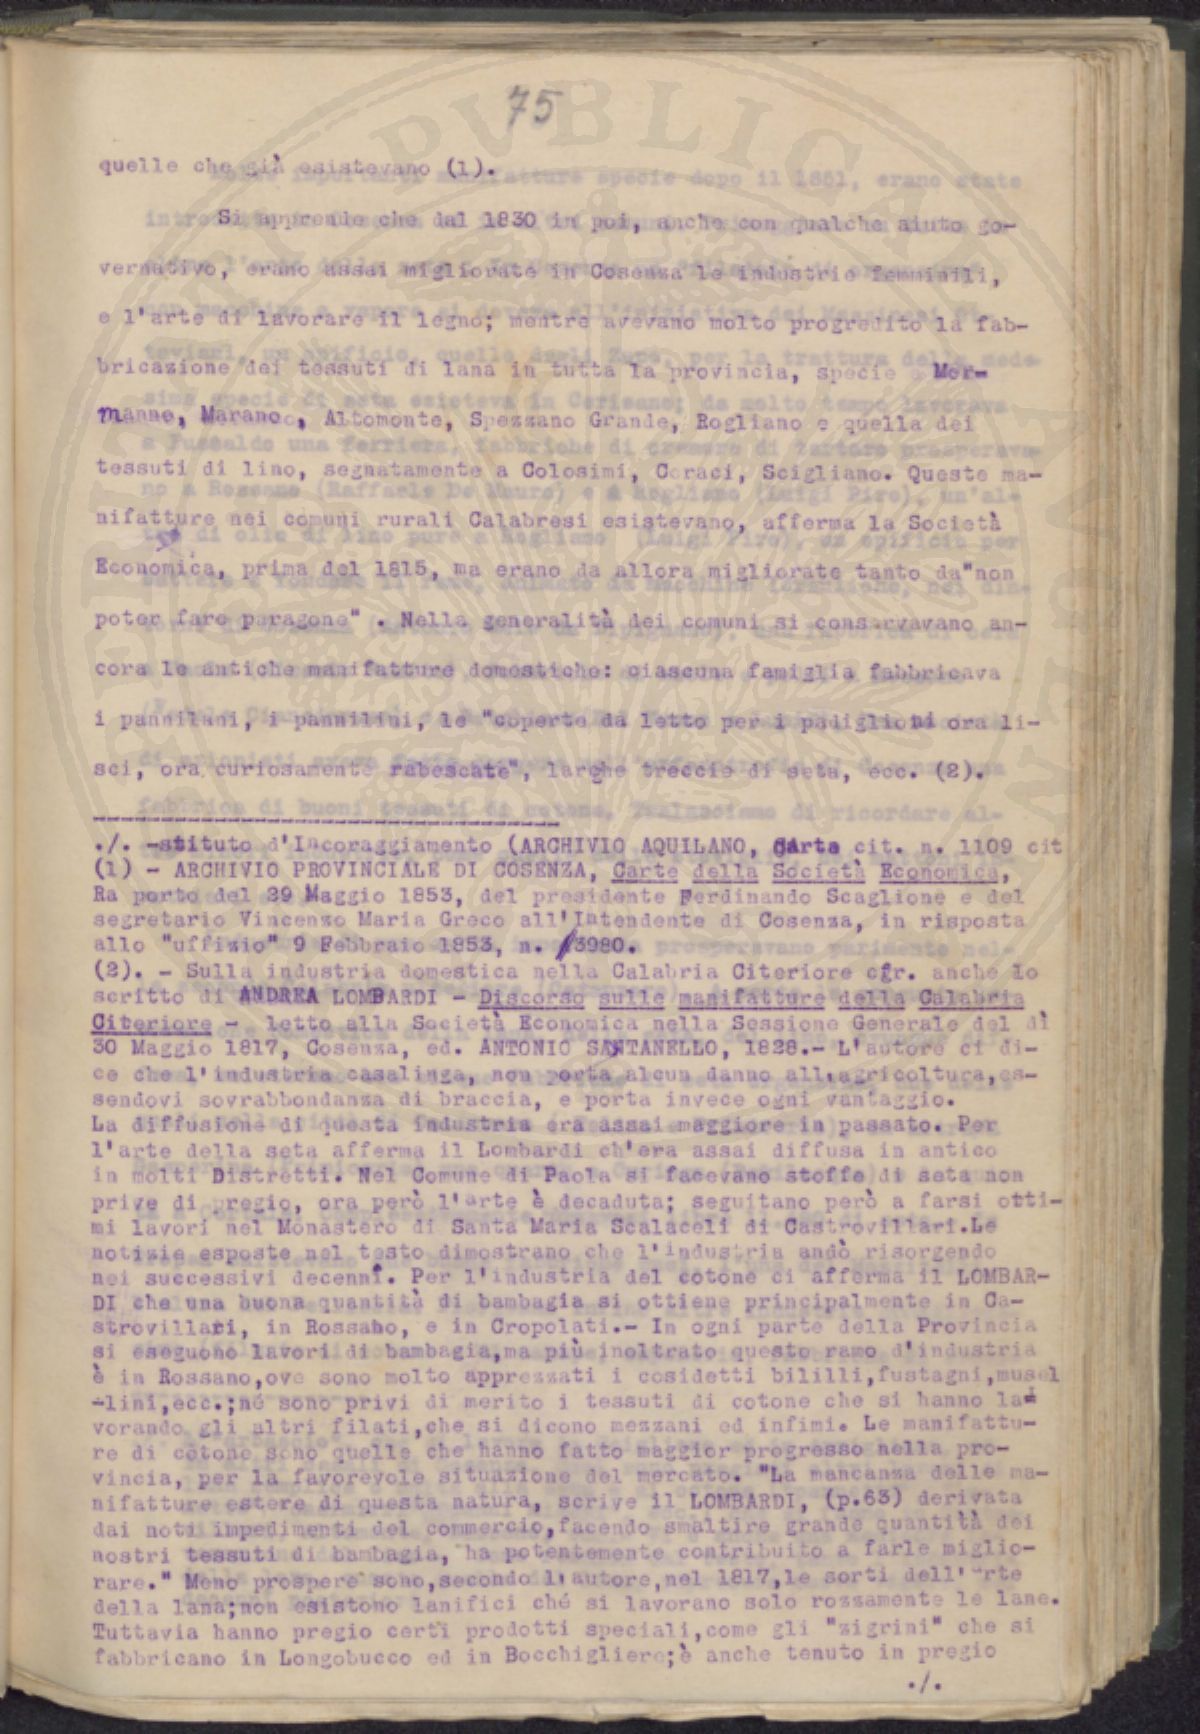 75
quelle che già esistevano (1).
Si apprende che dal 1830 in poi, anche con qualche aiuto go-
vernativo, erano assai migliorate in Cosenza le industrie femminili,
e l'arte di lavorare il legno; mentre avevano molto progredito la fab-
bricazione dei tessuti di lana in tutta la provincia, specie a Mor-
manno, Marano, Altomonte, Spezzano Grande, Rogliano e quella dei
tessuti di lino, segnatamente a Colosimi, Coraci, Scigliano. Queste ma-
nifatture nei comuni rurali Calabresi esistevano, afferma la Società
Economica, prima del 1815, ma erano da allora migliorate tanto da"non
poter fare paragone" . Nella generalità dei comuni si conservavano an-
cora le antiche manifatture domestiche: ciascuna famiglia fabbricava
i pannilani, i pannilini, le "coperte da letto per i padiglioni ora li-
sci, ora curiosamente rabescate", larghe treccie di seta, ecc. (2).
./. -stituto d'Incoraggiamento (ARCHIVIO AQUILANO, Carte cit. n. 1109 cit
(1) - ARCHIVIO PROVINCIALE DI COSENZA, Carte della Società Economica,
Ra porto del 29 Maggio 1853, del presidente Ferdinando Scaglione e del
segretario Vincenzo Maria Greco all'Intendente di Cosenza, in risposta
allo "uffizio" 9 Febbraio 1853, n. 3980.
(2). - Sulla industria domestica nella Calabria Citeriore cfr. anche lo
scritto di ANDREA LOMBARDI - Discorso sulle manifatture della Calabria
Citeriore - letto alla Società Economica nella Sessione Generale del dì
30 Maggio 1817, Cosenza, ed. ANTONIO SANTANELLO, 1828.- L'autore ci di-
ce che l'industria casalinga, non porta alcun danno all'agricoltura,es-
sendovi sovrabbondanza di braccia, e porta invece ogni vantaggio.
La diffusione di questa industria era assai maggiore in passato. Per
l'arte della seta afferma il Lombardi ch'era assai diffusa in antico
in molti Distretti. Nel Comune di Paola si facevano stoffe di seta non
prive di pregio, ora però l'arte è decaduta; seguitano però a farsi otti-
mi lavori nel Monastero di Santa Maria Scalaceli di Castrovillari.Le
notizie esposte nel testo dimostrano che l'industria andò risorgendo
nei successivi decenni. Per l'industria del cotone ci afferma il LOMBAR-
DI che una buona quantità di bambagia si ottiene principalmente in Ca-
strovillari, in Rossano, e in Cropolati.- In ogni parte della Provincia
si eseguono lavori di bambagia,ma più inoltrato questo ramo d'industria
è in Rossano,ove sono molto apprezzati i cosidetti bililli,fustagni,musel
-lini,ecc.;né sono privi di merito i tessuti di cotone che si hanno la-
vorando gli altri filati,che si dicono mezzani ed infimi. Le manifattu-
re di cotone sono quelle che hanno fatto maggior progresso nella pro-
vincia, per la favorevole situazione del mercato. "La mancanza delle ma-
nifatture estere di questa natura, scrive il LOMBARDI, (p.63) derivata
dai noti impedimenti del commercio,facendo smaltire grande quantità dei
nostri tessuti di bambagia, ha potentemente contribuito a farle miglio-
rare." Meno prospere sono,secondo l'autore,nel 1817,le sorti dell'arte
della lana;non esistono lanifici ché si lavorano solo rozzamente le lane.
Tuttavia hanno pregio certi prodotti speciali,come gli "zigrini" che si
fabbricano in Longobucco ed in Bocchigliere;è anche tenuto in pregio
./.